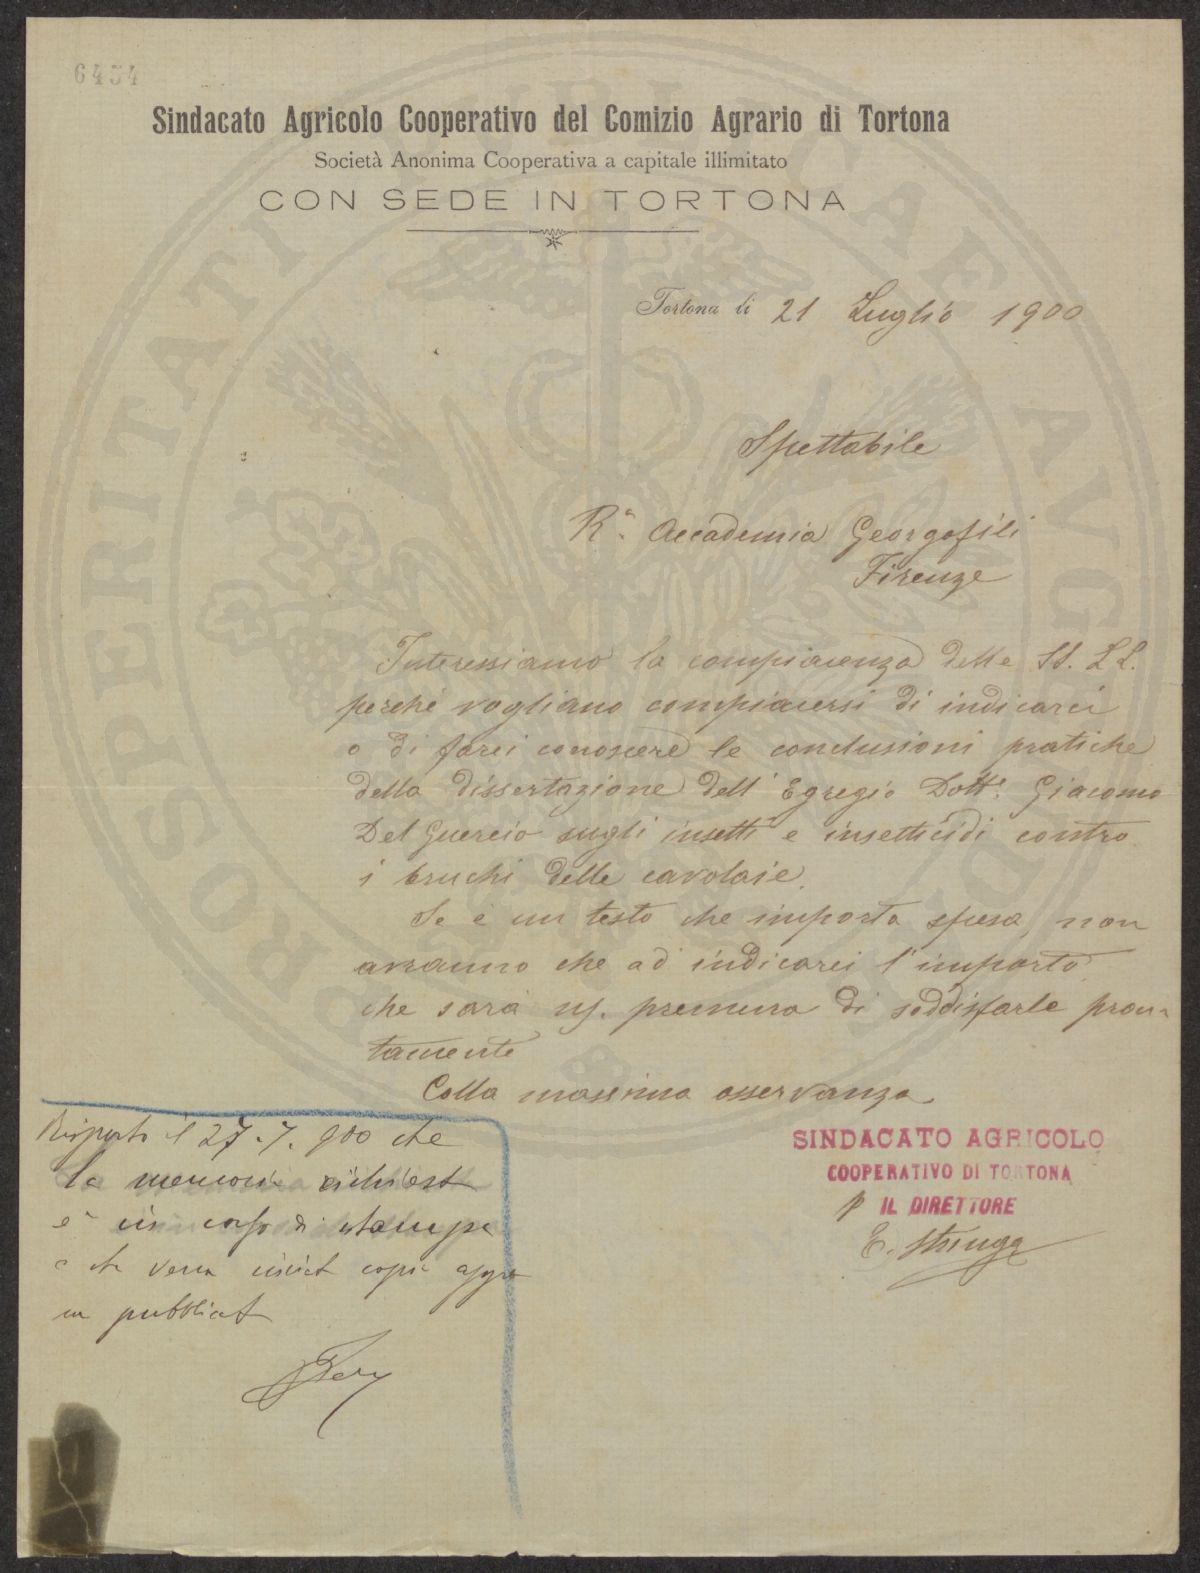 6454
Sindacato Agricolo Cooperativo del Comizio Agrario di Tortona
Società Anonima Cooperativa a capitale illimitato
CON SEDE IN TORTONA
Tortona li 21 Luglio 1900
Spettabile
Rª Accademia Georgofili
Firenze
Interessiamo la compiacenza delle SS. LL.
perchè vogliano compiacersi di indicarci
o di farci conoscere le conclusioni pratiche
della dissertazione dell' Egregio Dott. Giacomo
Del Guercio sugli insetti e insetticidi contro
i bruchi delle cavolaie.
Se è un testo che importa spesa, non
avranno che ad indicarci l'importo
che sarà ns. premura di soddisfarle pron-
tamente
Colla massima osservanza
SINDACATO AGRICOLO
COOPERATIVO DI TORTONA
p IL DIRETTORE
E.
Risposto il 27.7.900 che
la memoria richiest
è in corso di stampa
e che verrà copia
pubblicat
PROSPERITATI PVBLICAE AVGENDAE